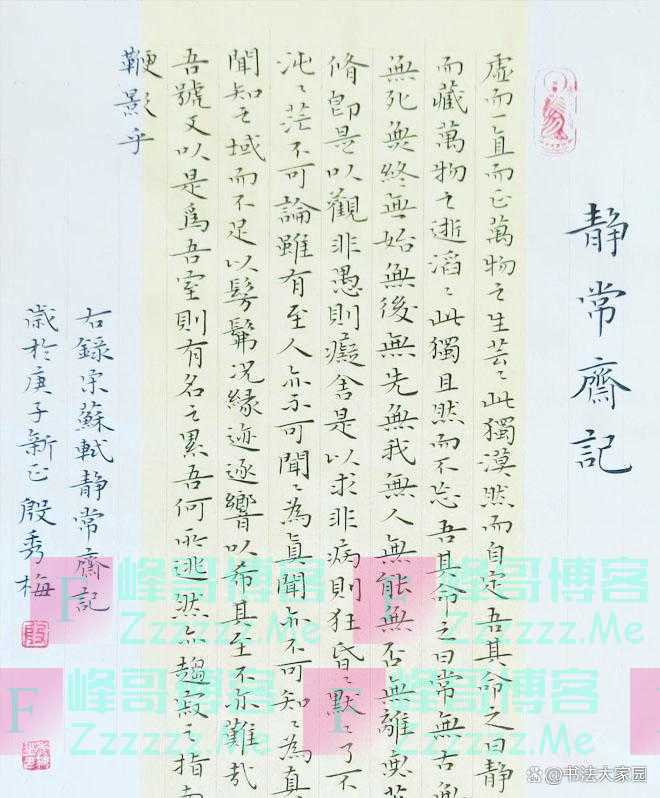 靜常齋記
虛而一直而正萬物之生芸〻此獨漠然而自定吾其命之曰靜
而藏萬物之逝滔〻此獨且然而不忘吾其命之曰常無古無
無死無終無始無後無先無我無人無能無否無離無著
脩即是以觀非愚則癡舍是以求非病則狂昏〻默〻了不
沌〻茫不可論雖有至人亦不可聞〻為真聞亦不可知〻為真
聞知之域而不足以髣髴況緣迹逐響以希其至不亦難哉
吾號又以是爲吾室則有名之累吾何所逃然亦趨寂之指南
鞭影乎
右錄宋蘇軾靜常齋記
歲於庚子新正殷秀梅
殷
F 峰哥博客
Zzzzzz.Me
F 峰哥博客
Zzzzzz.Me
F 峰哥博客
Zzzzzz.Me
F 峰哥博客
Zzzzzz.Me
@书法大家园